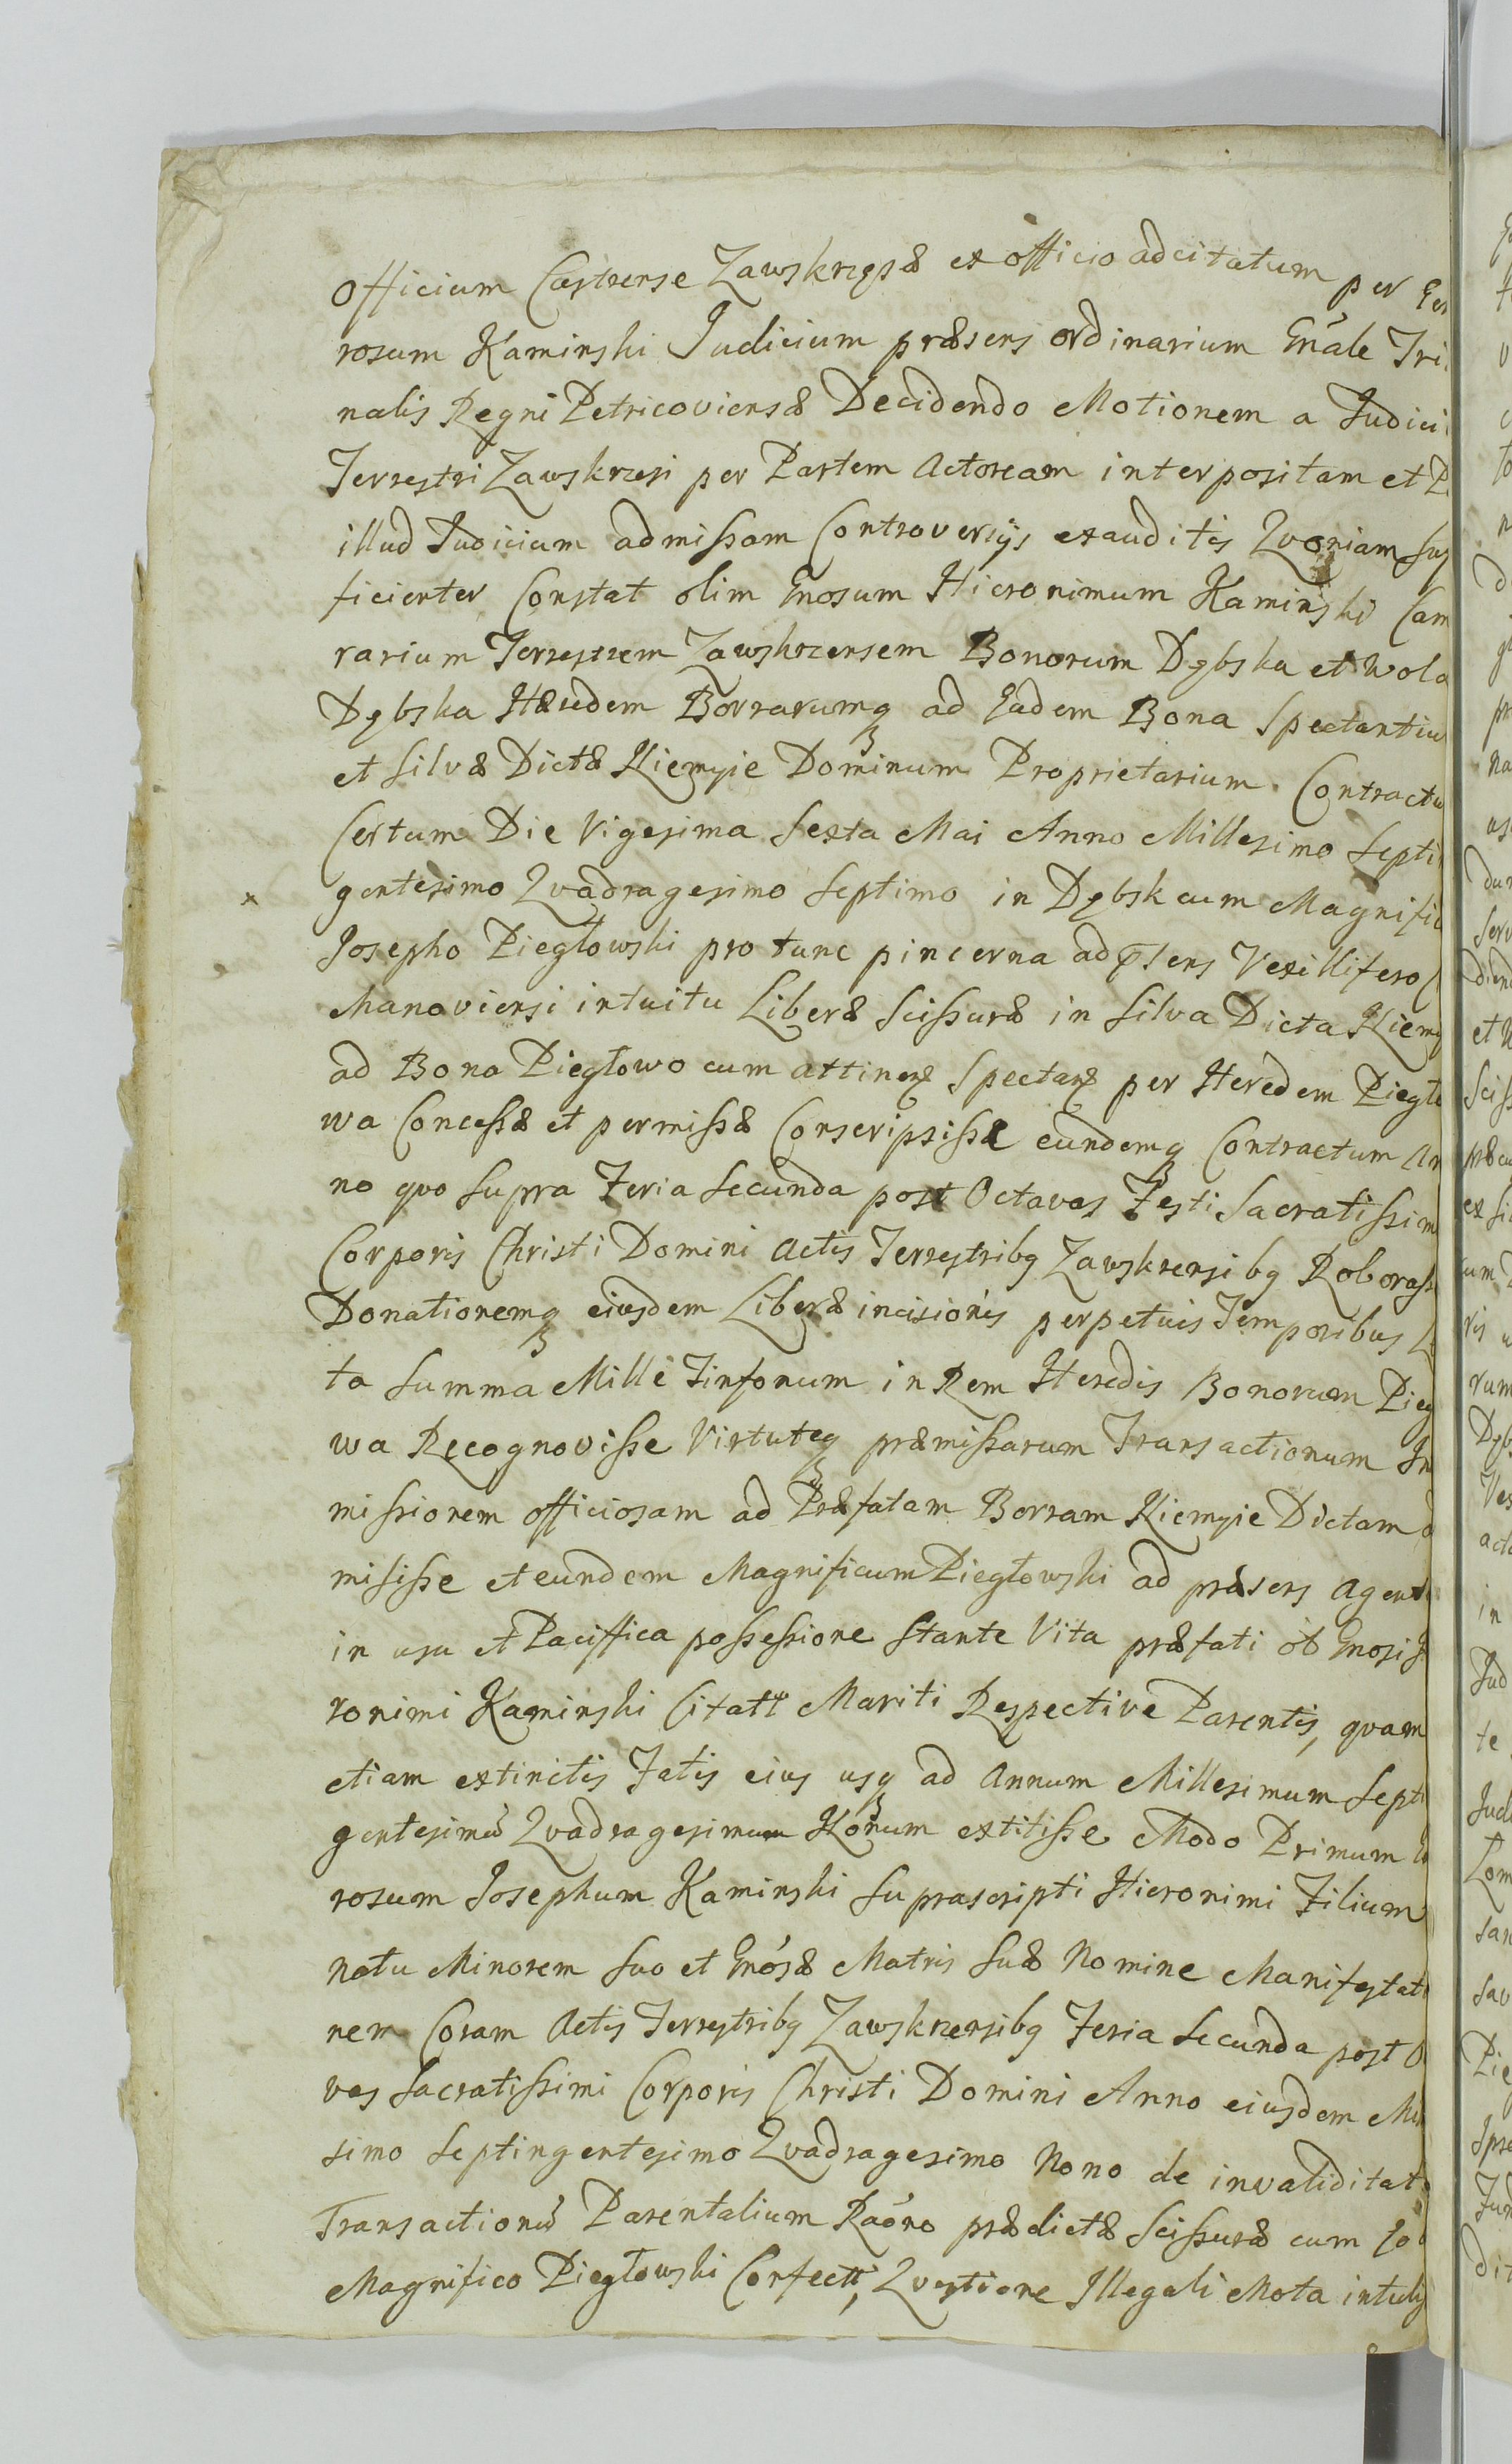 officium Castrense Zawskrzęsæ ex officio adcitatum per Gen
rosum Kaminski Judicium præsens ordinarium Gńale Tri
nalis Regni Petricoviensæ Decidendo Motionem a Judici
Terrestri Zawskrzesi per Partem Actoream interpositam et P
illud Judicium admissam Controversijs exauditis Qvoniam suf
ficienter Constat olim Gnosum Hieronimum Kaminski Cam
rarium Terrestrem Zawskrzensem Bonorum Dębska et Wola
Dębska Hæredem Borrarumq ad Eadem Bona Spectantiu
et Silvæ Dictæ Kiempie Dominum Proprietarium Contractu
Certum Die Vigesima Sexta Mai Anno Millesimo Septi
gentesimo Qvadragesimo Septimo in Dębsk cum Magnific
Josepho Piegłowski pro tunc pincerna ad p̄sens Vexillifero
Manoviensi intuitu Liberæ Scissuræ in Silva Dicta Kiemp
ad Bona Piegłowo cum attinen Spectan per Heredem Piegło
wa Concessæ et permissæ Conscripsisse eundemq Contractum An
no qvo Supra Feria Secunda post Octavas Festi Sacratissim
Corporis Christi Domini Actis Terrestribq Zawskrensibq Roborass
Donationemq eiusdem Liberæ incisionis perpetuis Temporibus
ta Summa Mille Tinfonum in Rem Heredis Bonorum Pieg
wa Recognovisse Virtuteq præmissarum Transactionum In
missionem officiosam ad Præfatam Borram Kiempie Dictam
misisse et eundem Magnificum Piegłowski ad præsens Agent
in usu et Paciffica possessione Stante Vita præfati ob Gnosi
ronimi Kaminski Citatt Mariti Respective Parentis, qvam
etiam extinctis Fatis eius usq ad Annum Millesimum Septi
gentesimū Qvadragesimum Nonum extitisse Modo Primum
rosum Josephum Kaminski Suprascripti Hieronimi Filium
natu Minorem Suo et Gnósæ Matris Suæ Nomine Manifestati
nem Coram Actis Terrestribq Zawskrzensibq Feria Secunda post O
vas Sacratissimi Corporis Christi Domini Anno eiusdem Mil
simo Septingentesimo Qvadragesimo Nono de invaliditat
Transactionū Parentalium Raóne prædictæ Scissuræ cum
Magnifico Piegłowski Confectt, Qvestione Illegali Mota intuli